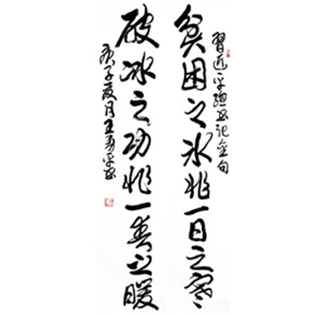 习近平总书记金句
贫困之冰非一日之寒
破冰之功非一春之暖
庚子夏月王勇平书